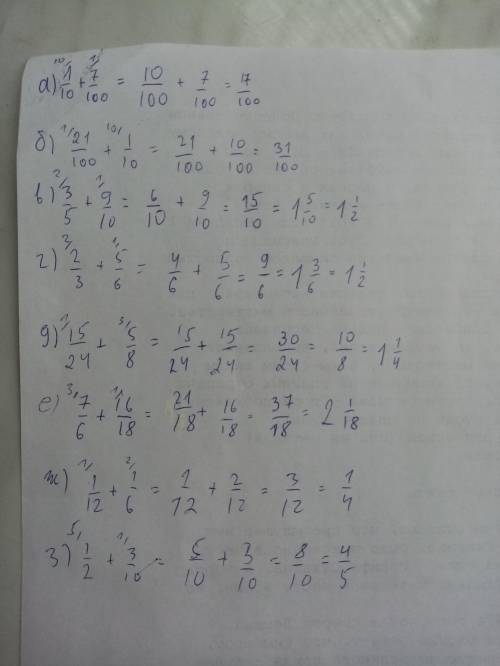 а) ¹⁰⁾1/10 + ¹⁾7/100 = 10/100 + 7/100 = 17/100
б) ¹⁾21/100 + ¹⁰⁾1/10 = 21/100 + 10/100 = 31/100
в) ²⁾3/5 + ¹⁾9/10 = 6/10 + 9/10 = 15/10 = 1 5/10 = 1 1/2
г) ²⁾2/3 + ¹⁾5/6 = 4/6 + 5/6 = 9/6 = 1 3/6 = 1 1/2
д) ¹⁾15/24 + ³⁾5/8 = 15/24 + 15/24 = 30/24 = 10/8 = 1 1/4
е) ³⁾7/6 + ¹⁾16/18 = 21/18 + 16/18 = 37/18 = 2 1/18
ж) ¹⁾1/12 + ²⁾1/6 = 1/12 + 2/12 = 3/12 = 1/4
з) ⁵⁾1/2 + ¹⁾3/10 = 5/10 + 3/10 = 8/10 = 4/5